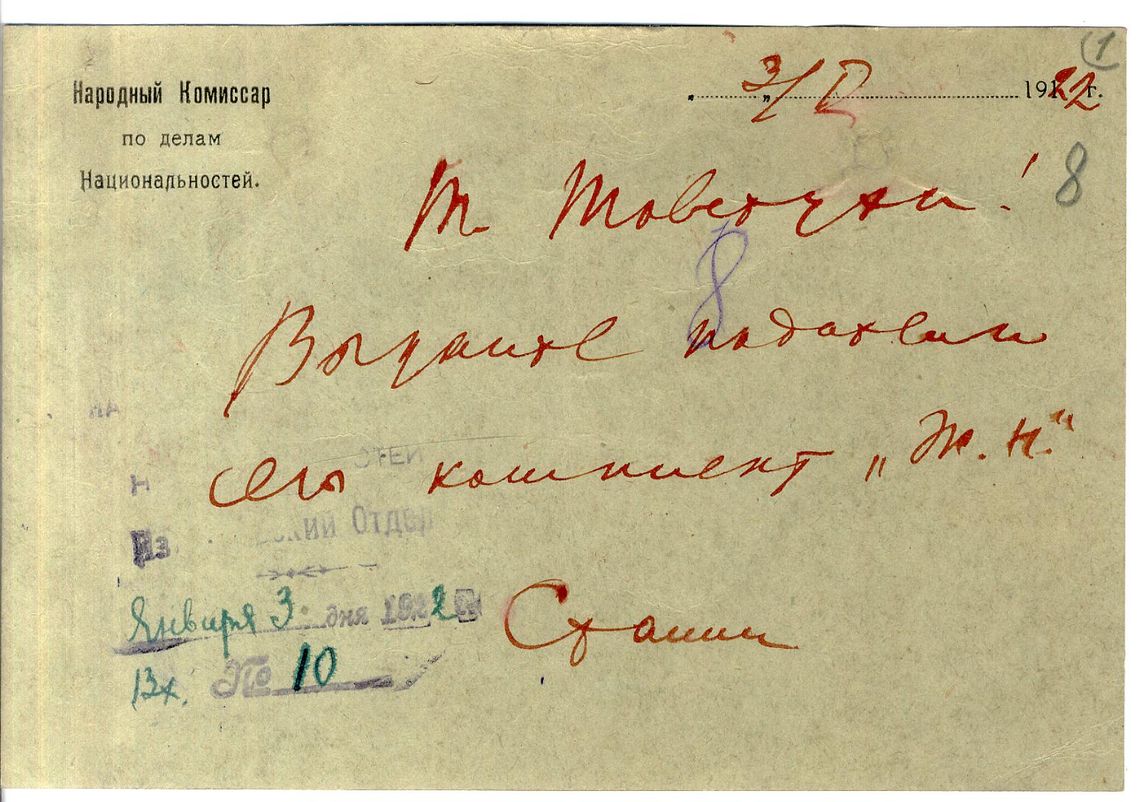 1
Народный Комиссар
по делам
Национальностей.
3/I 1922 г.
8
Т. Товстуха!
8
Выдайте подателю
сего комплект „Ж. Н.“
ОСТЕЙ
ский Отдел
Января 3 дня 1922 г.
Вх. № 10
Сталин